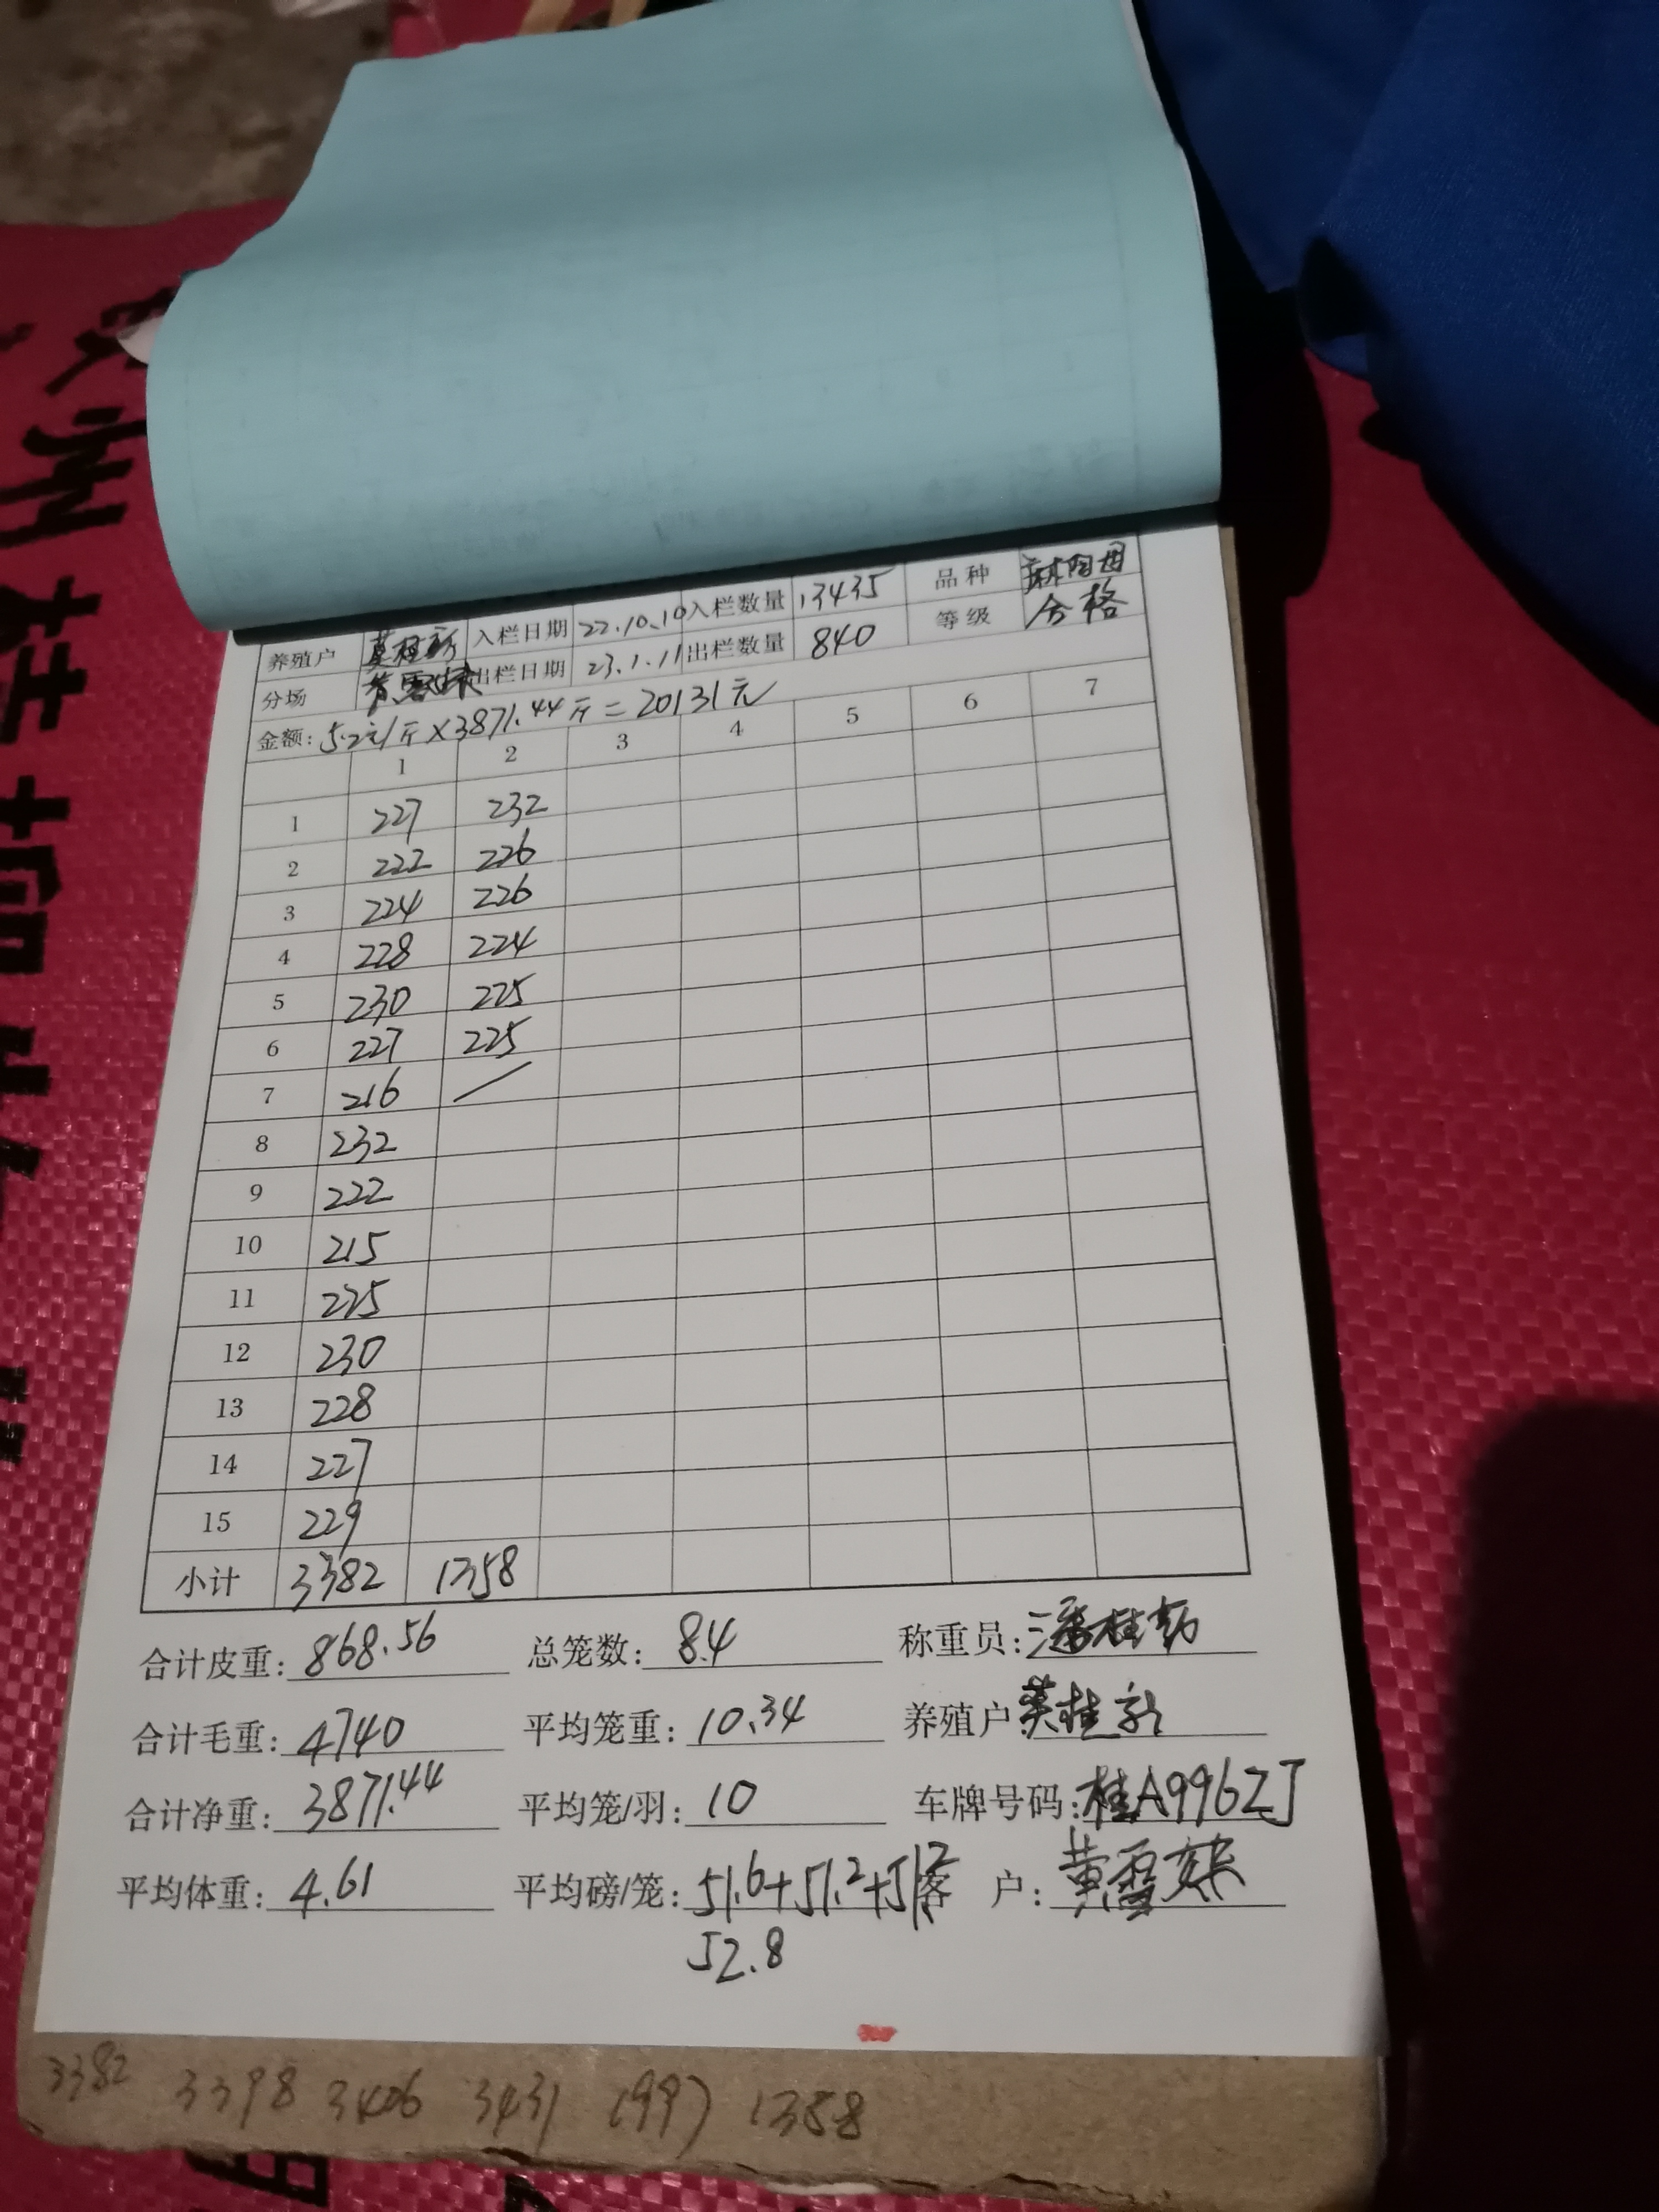 养殖户 莫桂新 入栏日期 22.10.10 入栏数量 13435 品种
分场 出栏日期 23.1.11 出栏数量 840 等级 合格
金额: 5.2元/斤×3871.44斤=20131元
1 2 3 4 5 6 7
1 227 232
2 222 226
3 224 226
4 228 224
5 230 225
6 227 225
7 216 /
8 232
9 222
10 215
11 225
12 230
13 228
14 227
15 229
小计 3382 1358
合计皮重: 868.56 总笼数: 84 称重员:
合计毛重: 4740 平均笼重: 10.34 养殖户 莫桂新
合计净重: 3871.44 平均笼/羽: 10 车牌号码: 桂A996ZJ
平均体重: 4.61 平均磅/笼: 51.6+51.2+51.2 客户:
52.8
3382 3398 3406 3431 1997 1358